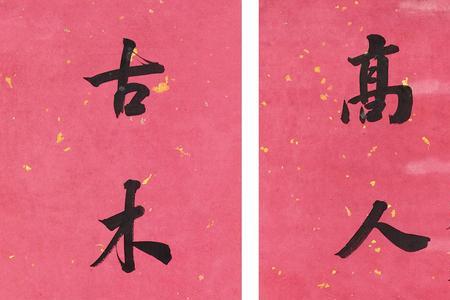 高人
古木